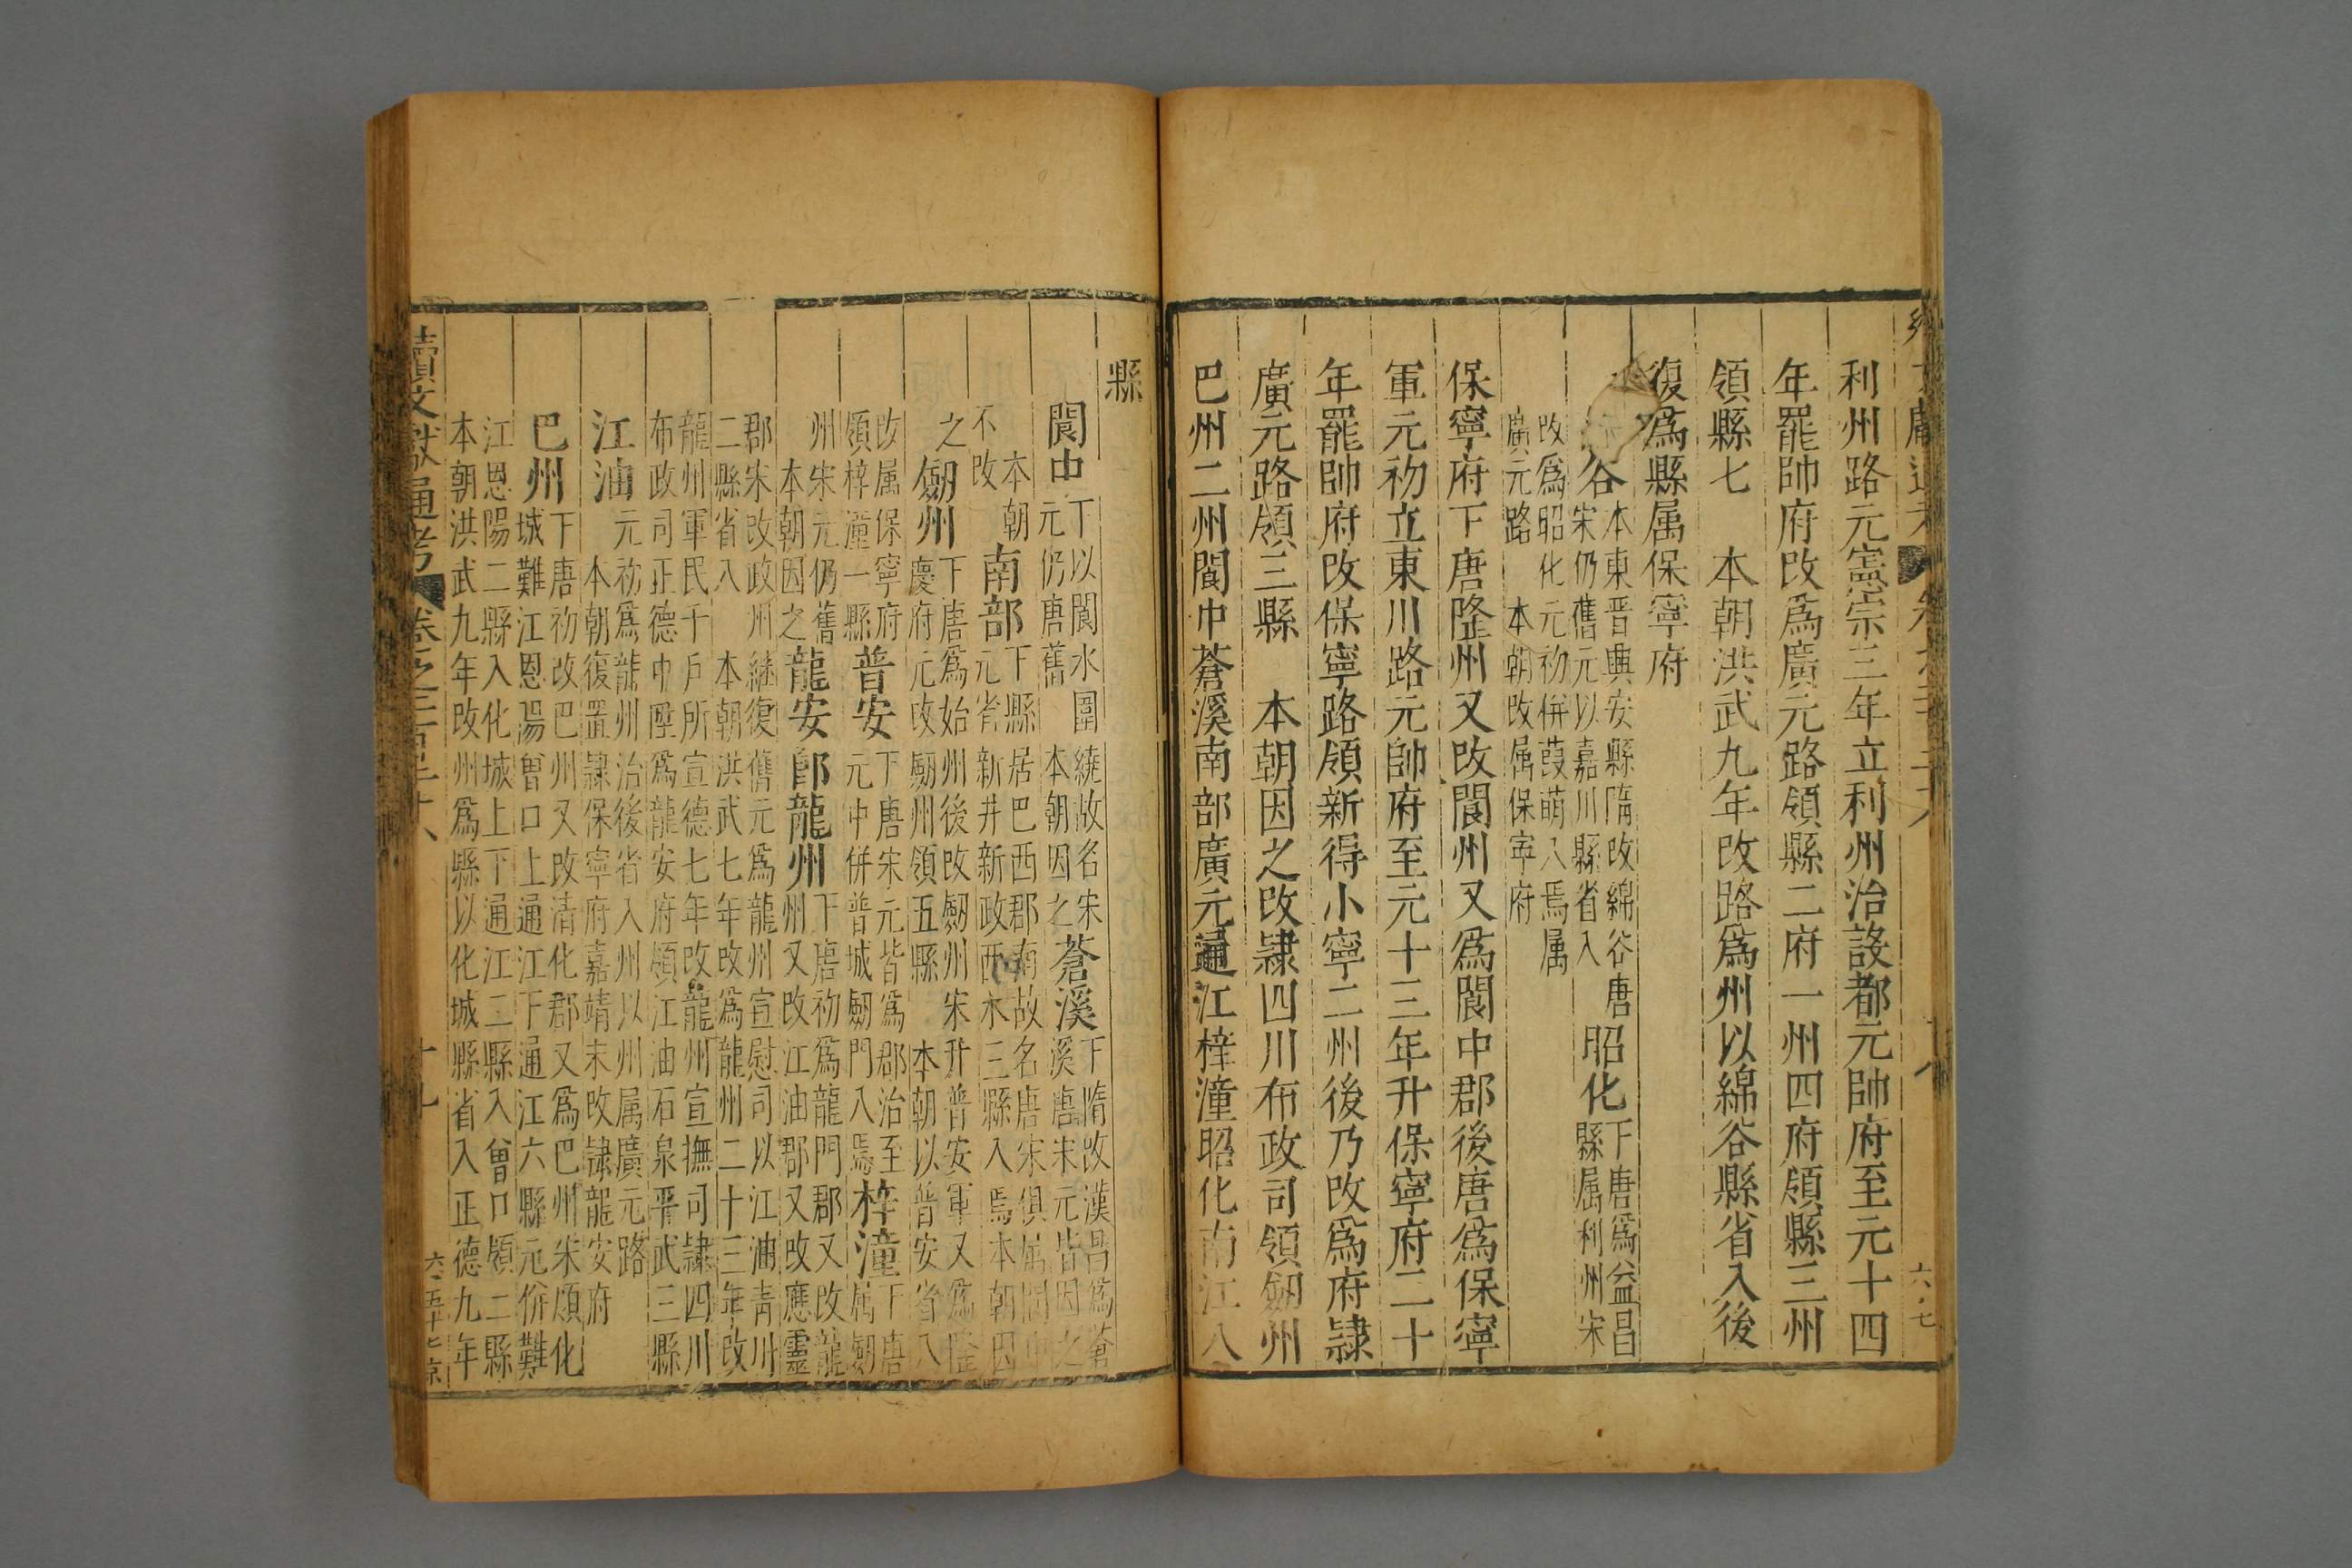 利州路元憲宗三年立利州治設都元帥府至元十四
年罷帥府改爲廣元路領縣二府一州四府領縣三州
領縣七　本朝洪武九年改路爲州以綿谷縣省入後
復爲縣属保寧府
谷
本東晋興安縣隋改綿谷唐
宋仍舊元以嘉川縣省入
昭化
下唐爲益昌
縣属利州宋
改爲昭化元初併葭萌入焉属
廣元路　本朝改属保寧府
保寧府下唐隆州又改閬州又爲閬中郡後唐爲保寧
軍元初立東川路元帥府至元十三年升保寧府二十
年罷帥府改保寧路領新得小寧二州後乃改爲府隷
廣元路領三縣　本朝因之改隷四川布政司領劒州
巴州二州閬中蒼溪南部廣元通江梓潼昭化南江八
縣
閬中
下以閬水圍繞故名宋
元仍唐舊　本朝因之
蒼溪
下隋改漢昌爲蒼
溪唐宋元皆因之
本朝
不改
南部
下縣居巴西郡南故名唐宋俱属閬中
元省新井新政西水三縣入焉本朝因
之
劒州
下唐爲始州後改劒州宋升普安軍又爲隆
慶府元改劒州領五縣　本朝以普安省入
改属保寧府
領梓潼一縣
普安
下唐宋元皆爲郡治至
元中併普城劒門入焉
梓潼
下唐
属劒
州宋元仍舊
本朝因之
龍安
即龍州
下唐初爲龍門郡又改龍
州又改江油郡又改應靈
郡宋改政州　継復舊元爲龍州宣慰司以江油青川
二縣省入　本朝洪武七年改爲龍州二十三年改
龍州軍民千戶所宣德七年改龍州宣撫司隷四川
布政司正德中陞爲龍安府領江油石泉平武三縣
江油
元初爲龍州治後省入州以州属廣元路
本朝復置隷保寧府嘉靖末改隷龍安府
巴州
下唐初改巴州又改清化郡又爲巴州宋領化
城難江恩陽曾口上通江下通江六縣元併難
江恩陽二縣入化城上下通江二縣入曾口領二縣
本朝洪武九年改州爲縣以化城縣省入正德九年
續文獻通考　卷之二百三十八　十九